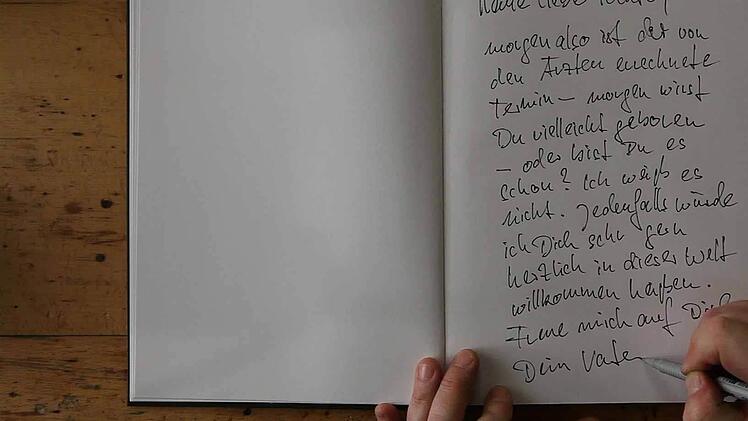 meine liebe
morgen also ist der von
den Ärzten errechnete
Termin – morgen wirst
Du vielleicht geboren
– oder bist Du es
schon? Ich weiß es
nicht. Jedenfalls würde
ich Dich sehr gern
herzlich in dieser Welt
willkommen heißen.
Freue mich auf Dich
Dein Vate